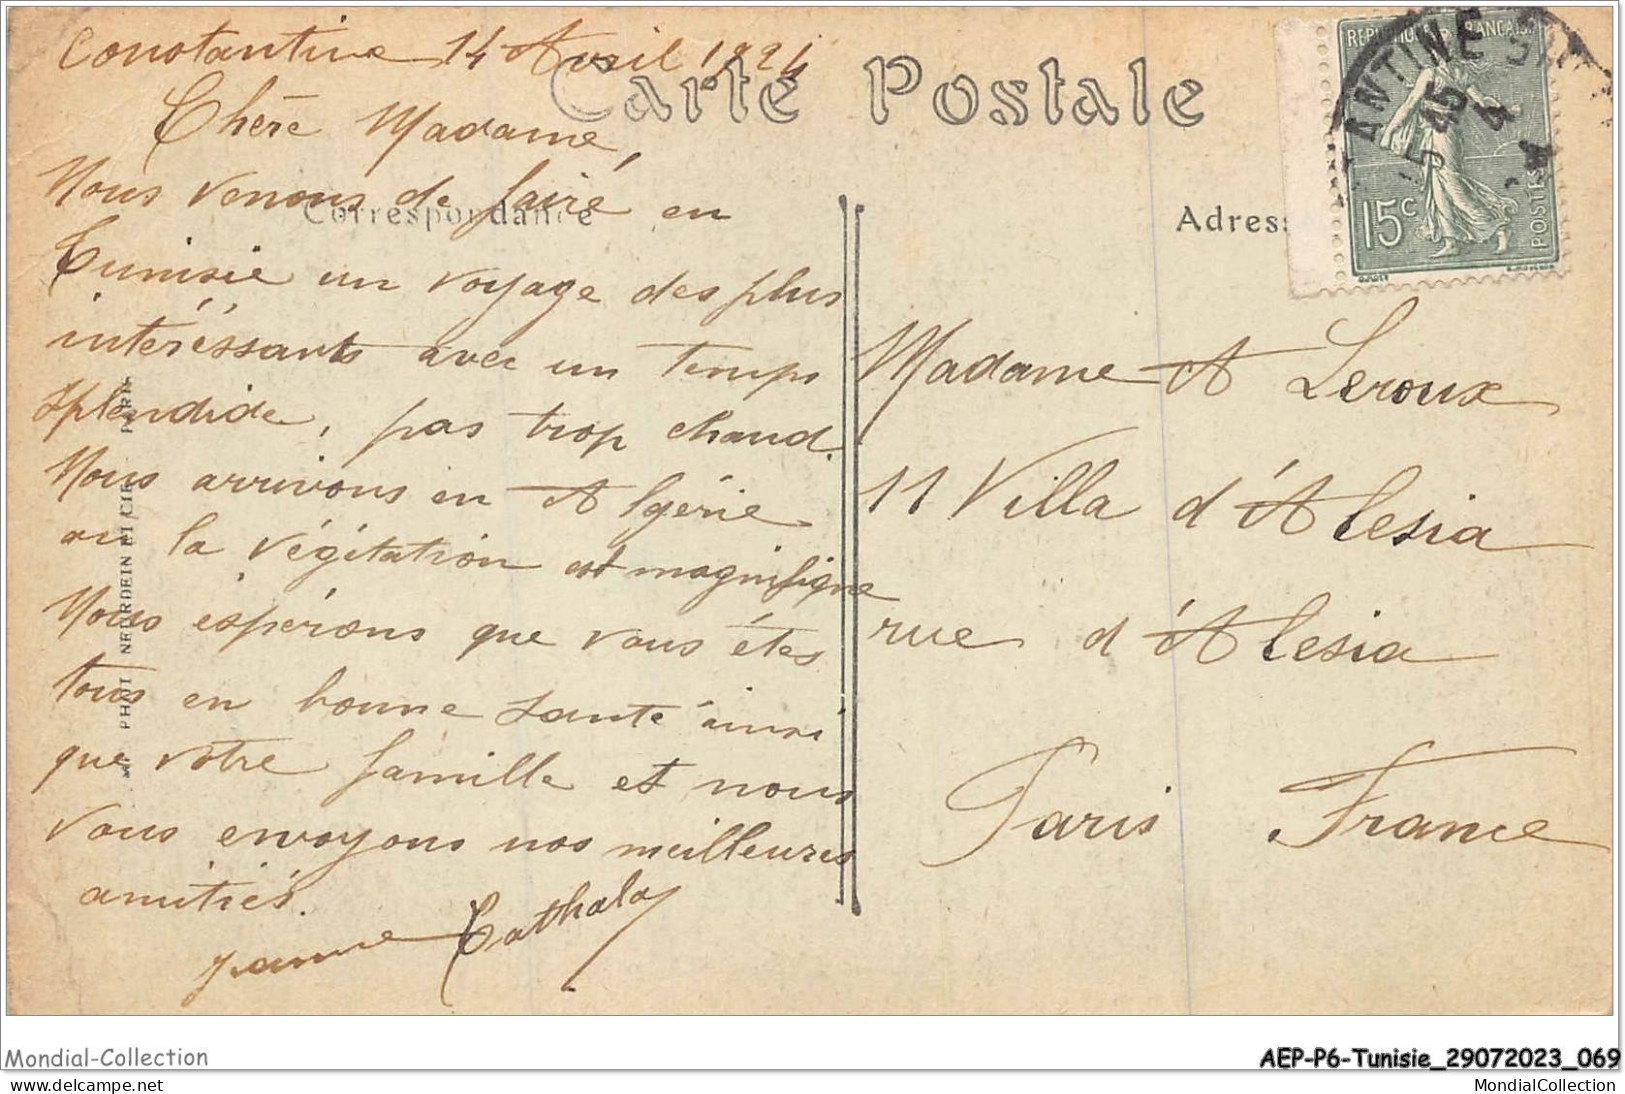 Constantine 14 Avril 1924
Carte Postale
Chère Madame,
Nous venons de faire en
Correspondance
Tunisie un voyage des plus
intéréssants avec un temps
splendide, pas trop chaud.
Nous arrivons en Algérie
où la végétation est magnifique
Nous espérons que vous êtes
tous en bonne santé ainsi
que votre famille et nous
vous envoyons nos meilleures
amitiés.
Jeanne Cathala
PHOT NEURDEIN ET CIE PARIS
REPUBLIQUE FRANÇAISE
15c
POSTES
ANTINE
15 45
4
Adress
Madame A Leroux
11 Villa d'Alesia
rue d'Alesia
Paris France
Mondial-Collection
delcampe.net
AEP-P6-Tunisie_29072023_069
MondialCollection